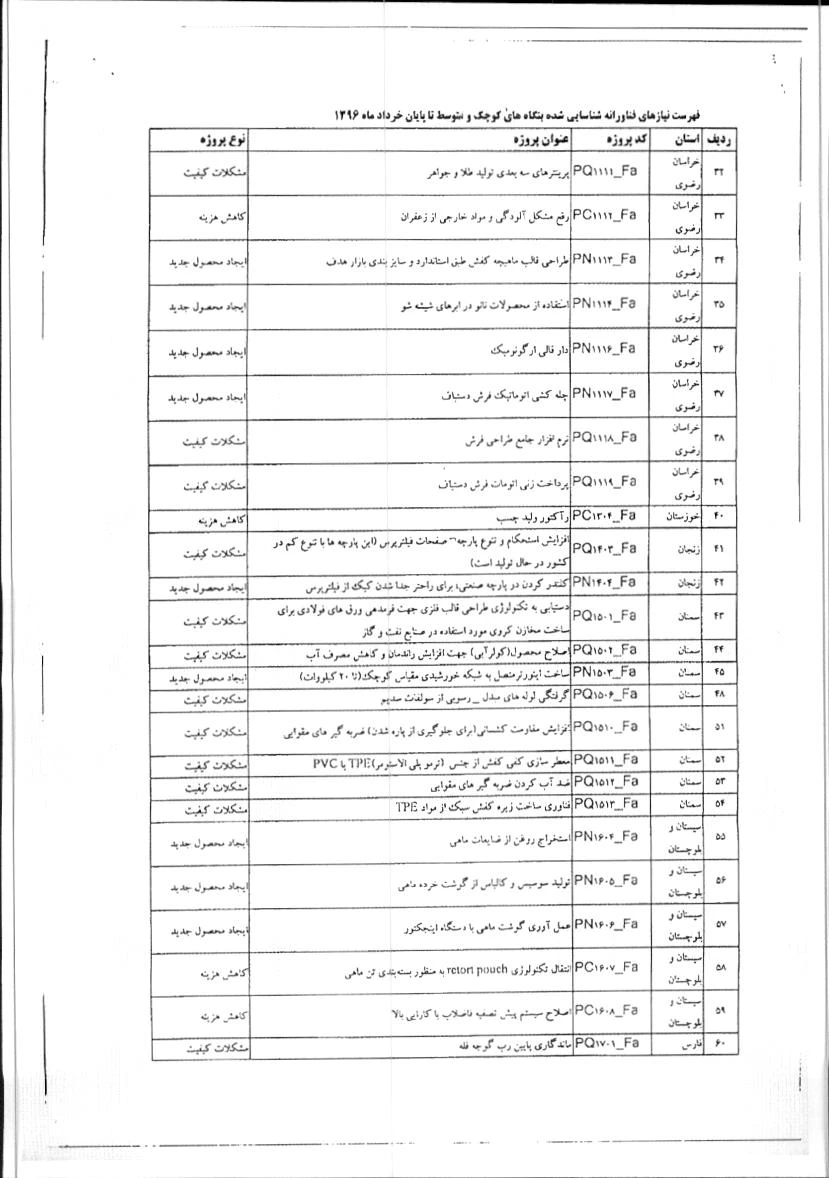 فهرست نیازهای فناورانه شناسایی شده بنگاه های کوچک و متوسط تا پایان خرداد ماه ۱۳۹۶
ردیف استان کد پروژه عنوان پروژه نوع پروژه
۳۲ خراسان رضوی PQ۱۱۱۱_Fa پرینترهای سه بعدی تولید طلا و جواهر مشکلات کیفیت
۳۳ خراسان رضوی PC۱۱۱۲_Fa رفع مشکل آلودگی و مواد خارجی از زعفران کاهش هزینه
۳۴ خراسان رضوی PN۱۱۱۳_Fa طراحی قالب ماهیچه کفش طبق استاندارد و سایز بندی بازار هدف ایجاد محصول جدید
۳۵ خراسان رضوی PN۱۱۱۴_Fa استفاده از محصولات نانو در ابرهای شیشه شو ایجاد محصول جدید
۳۶ خراسان رضوی PN۱۱۱۶_Fa دار قالی ارگونومیک ایجاد محصول جدید
۳۷ خراسان رضوی PN۱۱۱۷_Fa چله کشی اتوماتیک فرش دستباف ایجاد محصول جدید
۳۸ خراسان رضوی PQ۱۱۱۸_Fa نرم افزار جامع طراحی فرش مشکلات کیفیت
۳۹ خراسان رضوی PQ۱۱۱۹_Fa پرداخت زنی اتومات فرش دستباف مشکلات کیفیت
۴۰ خوزستان PC۱۳۰۴_Fa رآکتور ولید چسب کاهش هزینه
۴۱ زنجان PQ۱۴۰۳_Fa افزایش استحکام و تنوع پارچه صفحات فیلترپرس (این پارچه ها با تنوع کم در
کشور در حال تولید است) مشکلات کیفیت
۴۲ زنجان PN۱۴۰۴_Fa کلندر کردن در پارچه صنعتی، برای راحتر جدا شدن کیک از فیلترپرس ایجاد محصول جدید
۴۳ سمنان PQ۱۵۰۱_Fa دستیابی به تکنولوژی طراحی قالب فلزی جهت فرمدهی ورق های فولادی برای
ساخت مخازن کروی مورد استفاده در صنایع نفت و گاز مشکلات کیفیت
۴۴ سمنان PQ۱۵۰۲_Fa اصلاح محصول(کولرآبی) جهت افزایش راندمان و کاهش مصرف آب مشکلات کیفیت
۴۵ سمنان PN۱۵۰۳_Fa ساخت اینورتر متصل به شبکه خورشیدی مقیاس کوچک(تا ۲۰ کیلووات) ایجاد محصول جدید
۴۸ سمنان PQ۱۵۰۶_Fa گرفتگی لوله های مبدل _ رسوبی از سولفات سدیم مشکلات کیفیت
۵۱ سمنان PQ۱۵۱۰_Fa افزایش مقاومت کشسانی(برای جلوگیری از پاره شدن) ضربه گیر های مقوایی مشکلات کیفیت
۵۲ سمنان PQ۱۵۱۱_Fa معطر سازی کفی کفش از جنس (ترمو پلی الاستومر)TPE یا PVC مشکلات کیفیت
۵۳ سمنان PQ۱۵۱۲_Fa ضد آب کردن ضربه گیر های مقوایی مشکلات کیفیت
۵۴ سمنان PQ۱۵۱۳_Fa فناوری ساخت زیره کفش سبک از مواد TPE مشکلات کیفیت
۵۵ سیستان و بلوچستان PN۱۶۰۴_Fa استخراج روغن از ضایعات ماهی ایجاد محصول جدید
۵۶ سیستان و بلوچستان PN۱۶۰۵_Fa تولید سوسیس و کالباس از گوشت خرده ماهی ایجاد محصول جدید
۵۷ سیستان و بلوچستان PN۱۶۰۶_Fa عمل آوری گوشت ماهی با دستگاه اینجکتور ایجاد محصول جدید
۵۸ سیستان و بلوچستان PC۱۶۰۷_Fa انتقال تکنولوژی retort pouch به منظور بسته‌بندی تن ماهی کاهش هزینه
۵۹ سیستان و بلوچستان PC۱۶۰۸_Fa اصلاح سیستم پیش تصفیه فاضلاب با کارایی بالا کاهش هزینه
۶۰ فارس PQ۱۷۰۱_Fa ماندگاری پایین رب گوجه فله مشکلات کیفیت